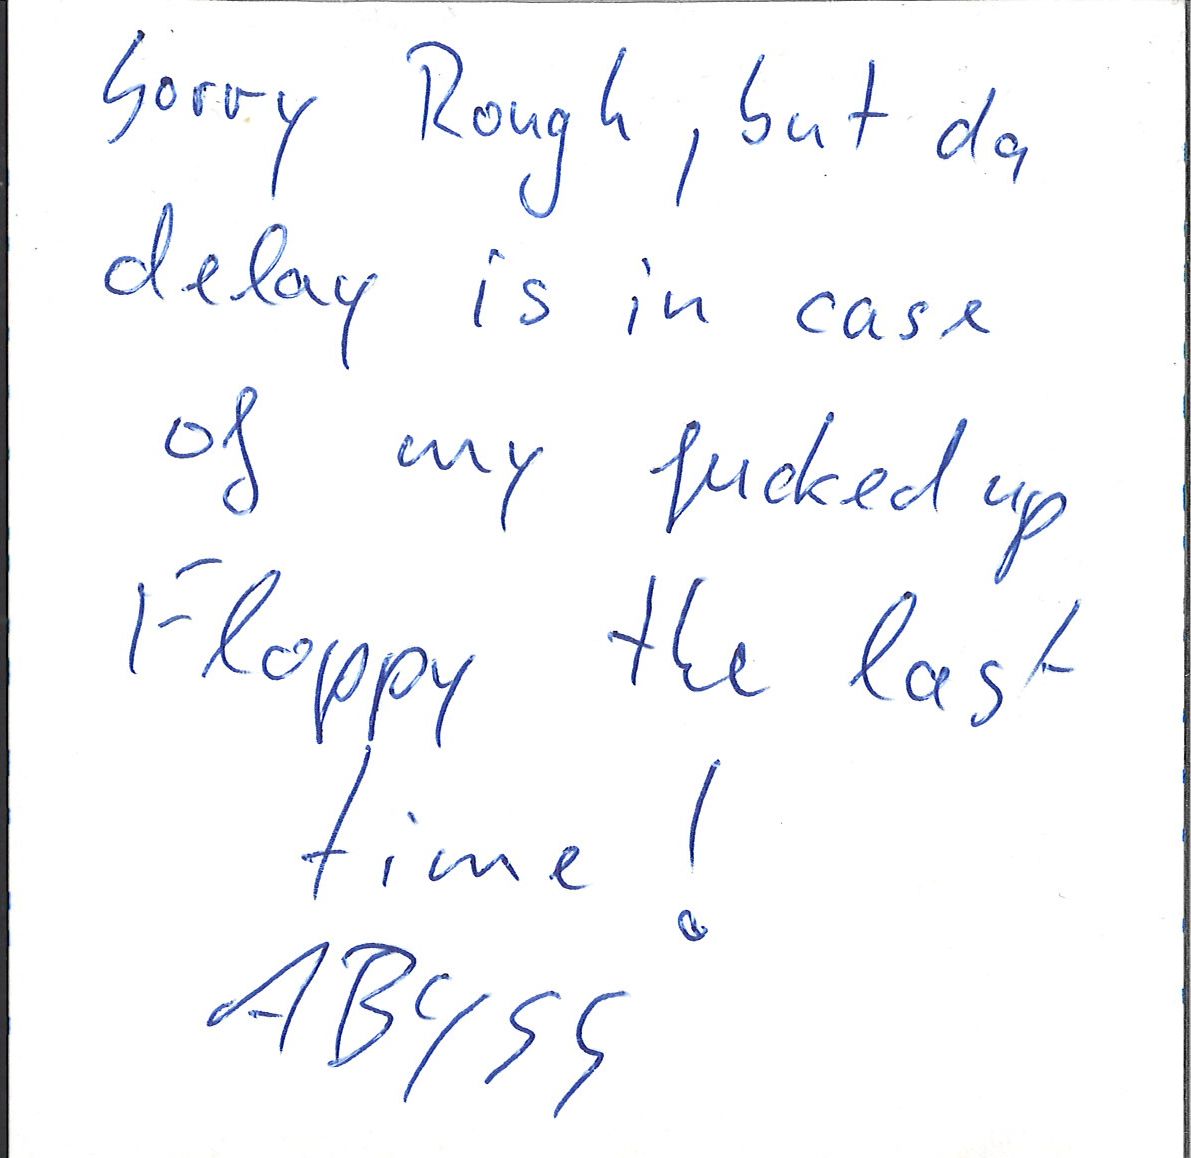 Sorry Rough, but da
delay is in case
of my fucked up
Floppy the last
time!
ABYSS